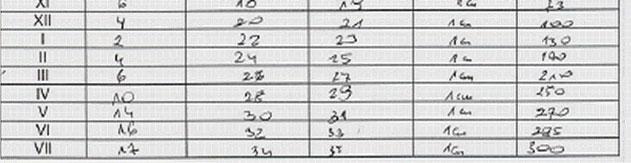 XI 6 18 19 1cm 73
XII 4 20 21 1cm 100
I 2 22 23 1cm 130
II 4 24 25 1cm
III 6 26 27 1cm 210
IV 10 28 29 1cm 250
V 14 30 31 1cm 270
VI 16 32 33 1cm 285
VII 17 34 35 1cm 300